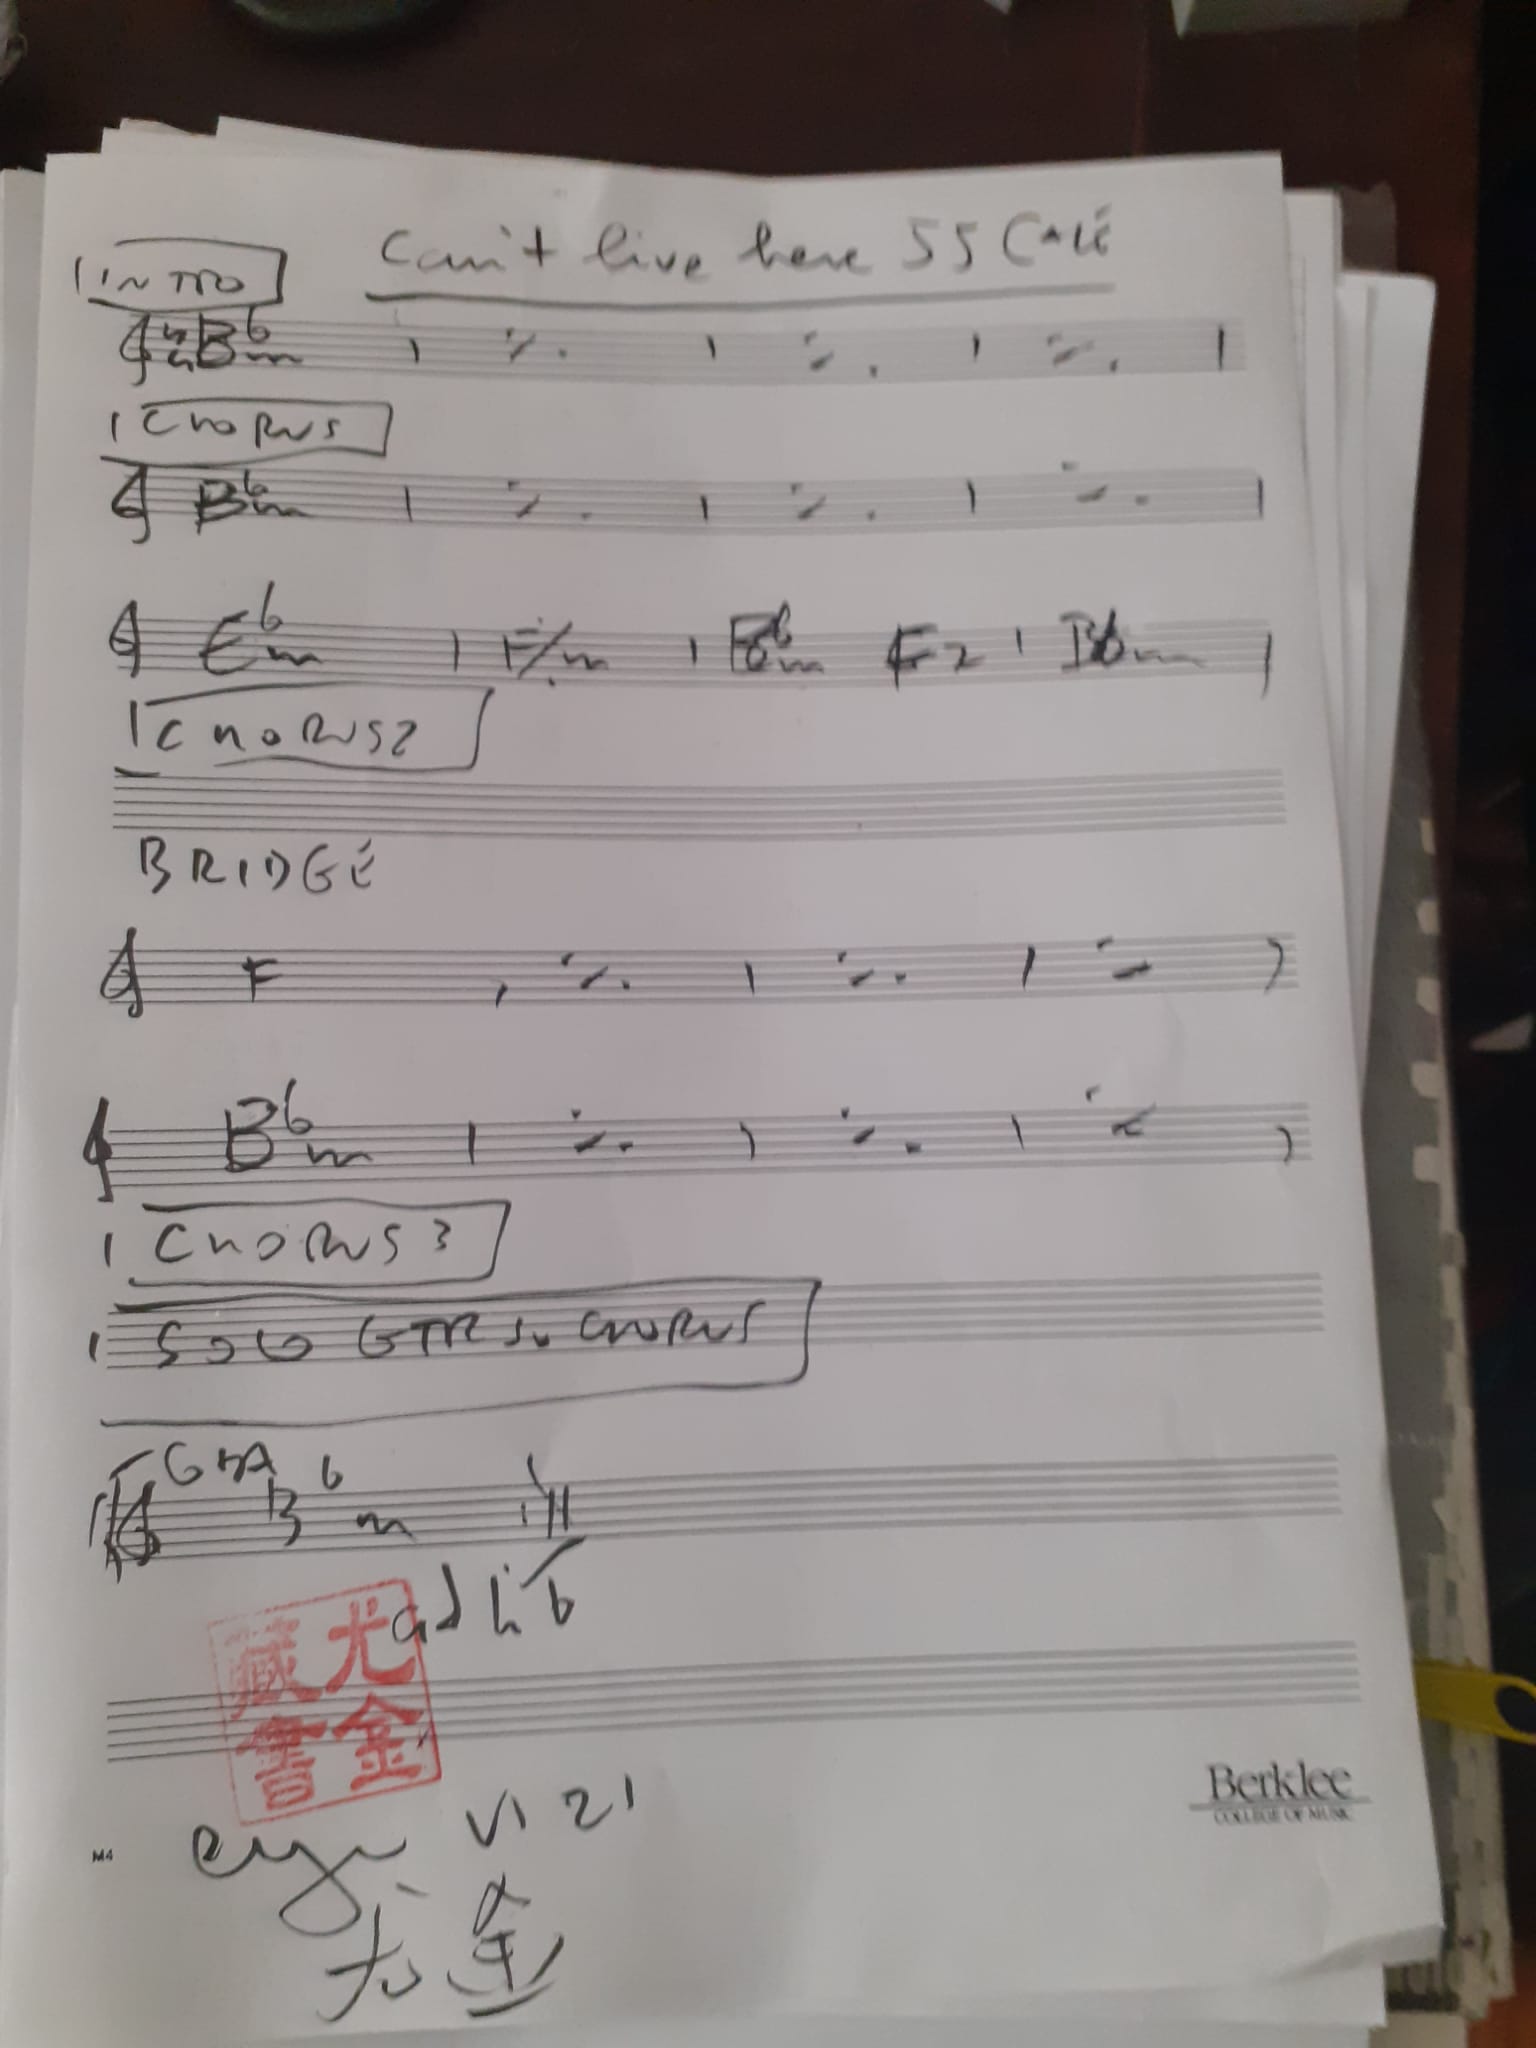 Can't live here JJ CALE
INTRO
4/4 Bbm | ٪ | ٪ | ٪ |
CHORUS
Bbm | ٪ | ٪ | ٪ |
Ebm | F/m | Bbm F7 | Bbm |
CHORUS 2
BRIDGE
F | ٪ | ٪ | ٪ |
Bbm | ٪ | ٪ | ٪ |
CHORUS 3
SOLO GTR SU CHORUS
Bbm
ad lib
尤金
藏書
VI 21
尤金
Berklee
COLLEGE OF MUSIC
M4